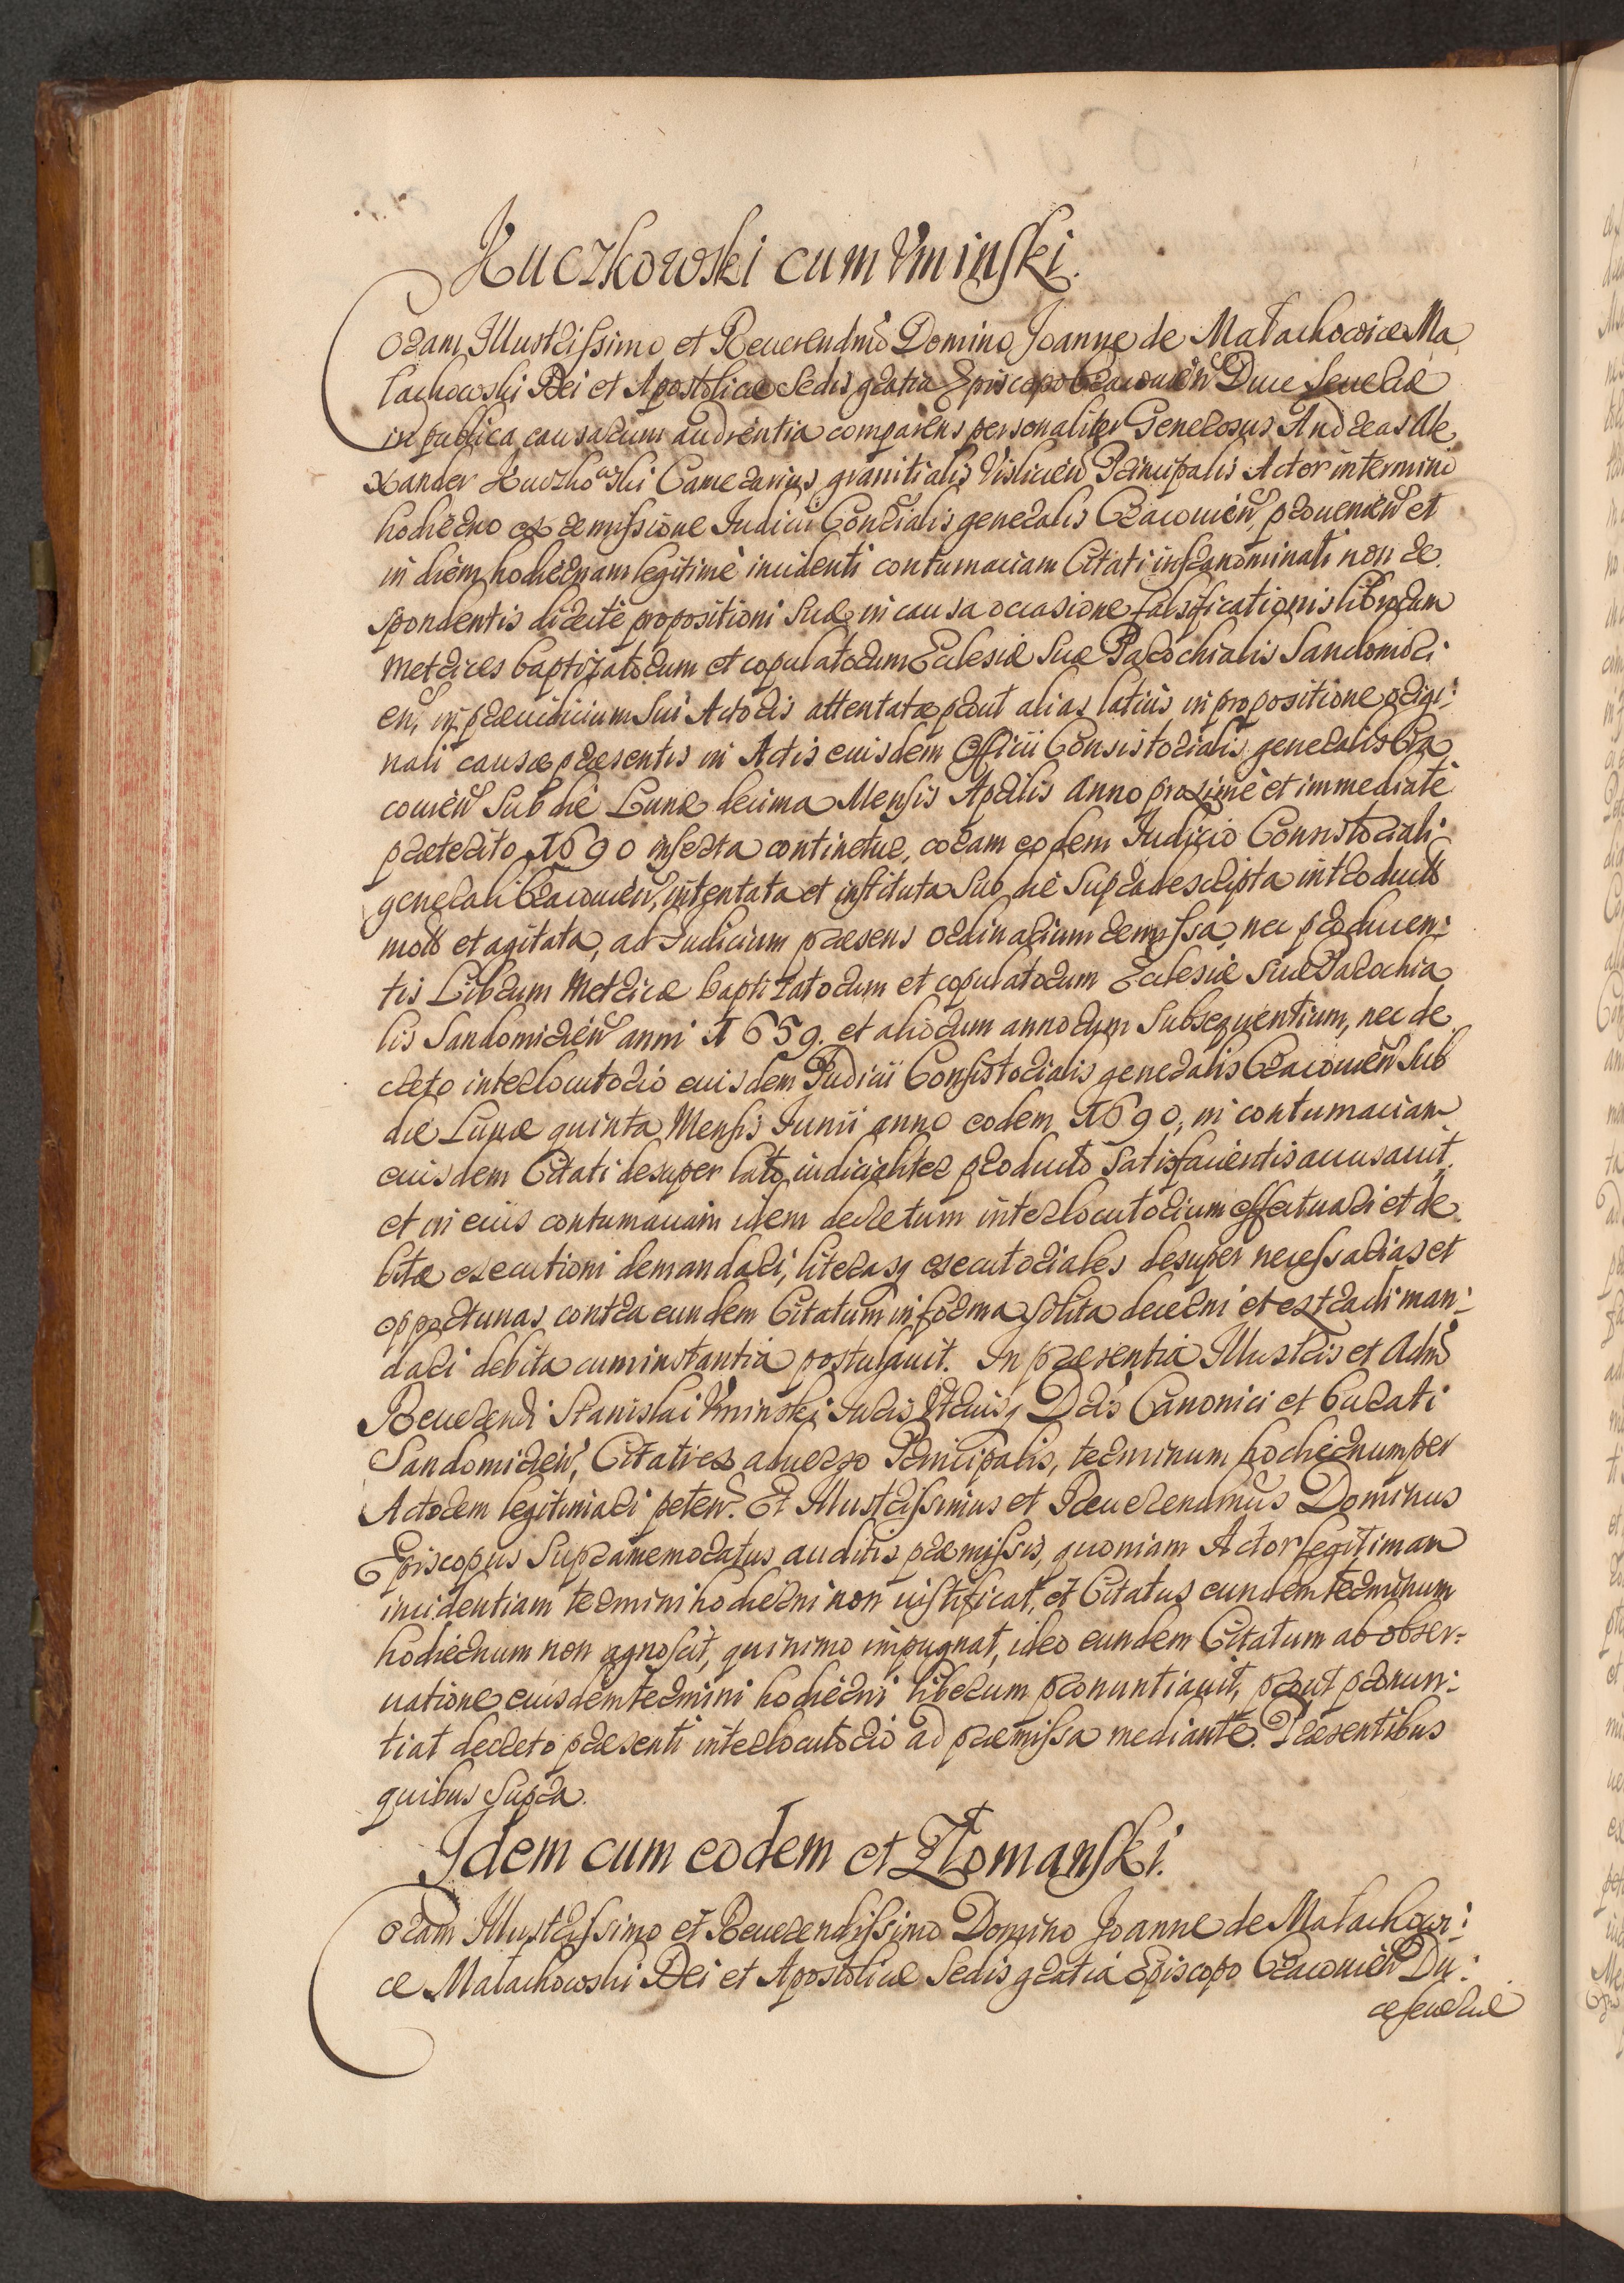 Kuczkowski cum Uminski.
Coram Illustrissimo et Reuerendmo Domino Joanne de Małachowice Ma
łachowski Dei et Apostolicæ Sedis gratia Episcopo Cracouien Duce Seueriæ
in publica causarum audientia comparens personaliter Generosus Andreas Ale
xander Kuczkowski Camerarius granitialis Vislicien Principalis Actor in termino
hodierno ex remissione Iudicii Con̄rialis generalis Cracouien, prouenien et
in diem hodiernam legitimè incidenti contumaciam Citati infranominati non re
spondentis directè propositioni suæ in causa occasione falsificationis librorum
metrices baptizatorum et copulatorum Ecclesiæ suæ Parochialis Sandomiri
en, in præiudicium sui Actoris attentatæ prout alias latius in propositione origi:
nali causæ præsentis in Actis euisdem Officii Consistorialis generalis Cra
couien sub die Lunæ decima Mensis Aprilis anno proximè et immediatè
præterito 1690 inserta continetur, coram eodem Iudicio Consistoriali
generali Cracouien, intentata et instituta sub die supradescripta introducta
mota et agitata, ad Iudicium præsens ordinarium remissa, nec producen:
tis Librum Metricæ baptizatorum et copulatorum Ecclesiæ suæ Parochia
lis Sandomirien anni 1659. et aliorum annorum subsequentium, nec de
creto interlocutorio euisdem Iudicii Consistorialis generalis Cracouien sub
die Lunæ quinta Mensis Iunii anno eodem 1690, in contumaciam
euisdem Citati desuper lato iudicialiter producto satisfacientis accusauit,
et in eius contumaciam idem decretum interlocutorium effectuari et de
bitæ executioni demandari, literasq executoriales desuper necessarias et
opportunas contra eundem Citatum in forma solita decerni et extradi man:
dari debita cum instantia postulauit. In præsentia Illustris et Adm̄
Reuerendi Stanislai Uminski Iuris Utriusq Dris Canonici et Curati
Sandomirien, Citati ex aduerso Principalis, terminum hodiernum per
Actorem legitimari peten. Et Illustrissimus et Reuerendmus Dominus
Episcopus supramemoratus auditis præmissis, quoniam Actor legitimam
incidentiam termini hodierni non iustificat, et Citatus eundem terminum
hodiernum non agnoscit, quinimo impugnat, ideo eundem Citatum ab obser=
uatione euisdem termini hodierni liberum pronuntiauit, prout pronun:
tiat decreto præsenti interlocutorio ad præmissa mediante. Præsentibus
quibus supra.
Idem cum eodem et Złomanski.
Coram Illustrissimo et Reuerendissimo Domino Joanne de Małachowi:
ce Małachowski Dei et Apostolicæ Sedis gratia Episcopo Cracouien Du:
ce Seueriæ